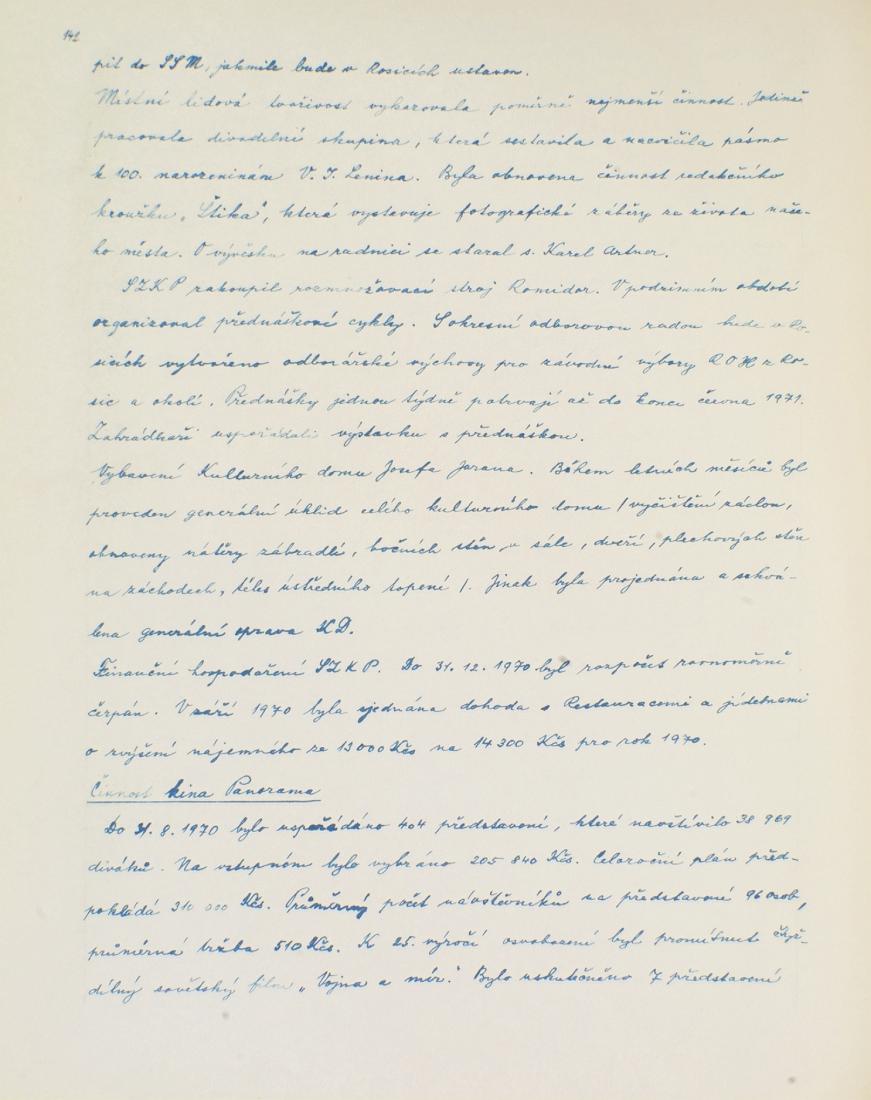 142
pit do SSM, jakmile bude v Rosicích ustaven.
Místní lidová tvořivost vykazovala poměrně nejmenší činnost. Jedině
pracovala divadelní skupina, která sestavila a nacvičila pásmo
k 100. narozeninám V. I. Lenina. Byla obnovena činnost redakčního
kroužku „Štika", která vystavuje fotografické záběry ze života naše-
ho města. O vývěsku na radnici se staral s. Karel Artner.
SZKP zakoupil rozmnožovací stroj Romidor. V podzimním období
organizoval přednáškové cykly. S okresní odborovou radou bude v Ro-
sicích vytvořeno odborářské výchovy pro závodní výbory ROH z Ro-
sic a okolí. Přednášky jednou týdně potrvají až do konce června 1971.
Zahrádkáři uspořádali výstavku s přednáškou.
Vybavení Kulturního domu Josefa Jarana. Během letních měsíců byl
proveden generální úklid celého kulturního domu /vyčištění záclon,
obnoveny nátěry zábradlí, bočních stěn v sále, dveří, plechových stěn
na záchodech, těles ústředního topení /. Jinak byla projednána a schvá-
lena generální oprava KD.
Finanční hospodaření SZKP. Do 31.12.1970 byl rozpočet rovnoměrně
čerpán. V září 1970 byla sjednána dohoda s Restauracemi a jídelnami
o zvýšení nájemného ze 13 000 Kčs na 14 300 Kčs pro rok 1970.
Činnost kina Panorama
Do 31.8.1970 bylo uspořádáno 404 představení, které navštívilo 38 969
diváků. Na vstupném bylo vybráno 205 840 Kčs. Celoroční plán před-
pokládá 310 000 Kčs. Průměrný počet návštěvníků na představení 96 osob,
průměrná tržba 510 Kčs. K 25. výročí osvobození byl promítnut čtyř-
dílný sovětský film „Vojna a mír." Bylo uskutečněno 7 představení